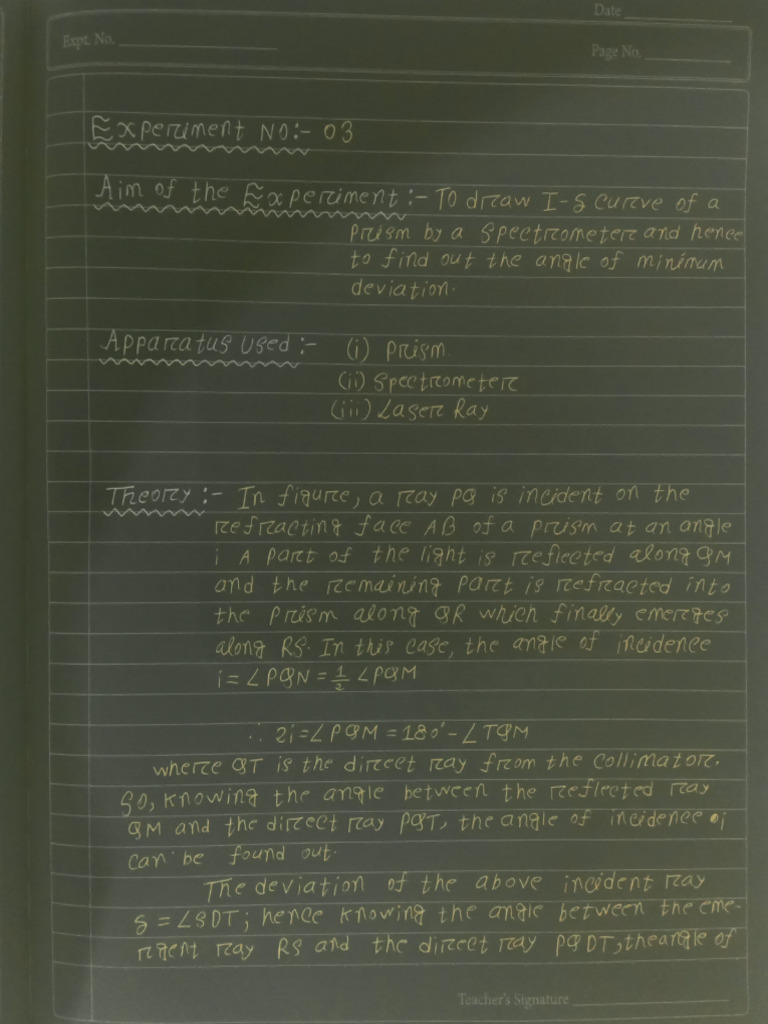 Date
Expt. No.
Page No.
Experiment NO:- 03
Aim of the Experiment :- To draw I-δ curve of a
prism by a spectrometer and hence
to find out the angle of minimum
deviation.
Apparatus used :- (i) prism
(ii) spectrometer
(iii) Laser Ray
Theory :- In figure, a ray PQ is incident on the
refracting face AB of a prism at an angle
i A part of the light is reflected along QM
and the remaining part is refracted into
the prism along QR which finally emerges
along RS. In this case, the angle of incidence
i = ∠PQN = 1/2 ∠PQM
∴ 2i = ∠PQM = 180° - ∠TQM
where QT is the direct ray from the collimator.
So, knowing the angle between the reflected ray
QM and the direct ray PQT, the angle of incidence i
can be found out.
The deviation of the above incident ray
δ = ∠SDT; hence knowing the angle between the eme-
rgent ray RS and the direct ray PQDT, the angle of
Teacher's Signature